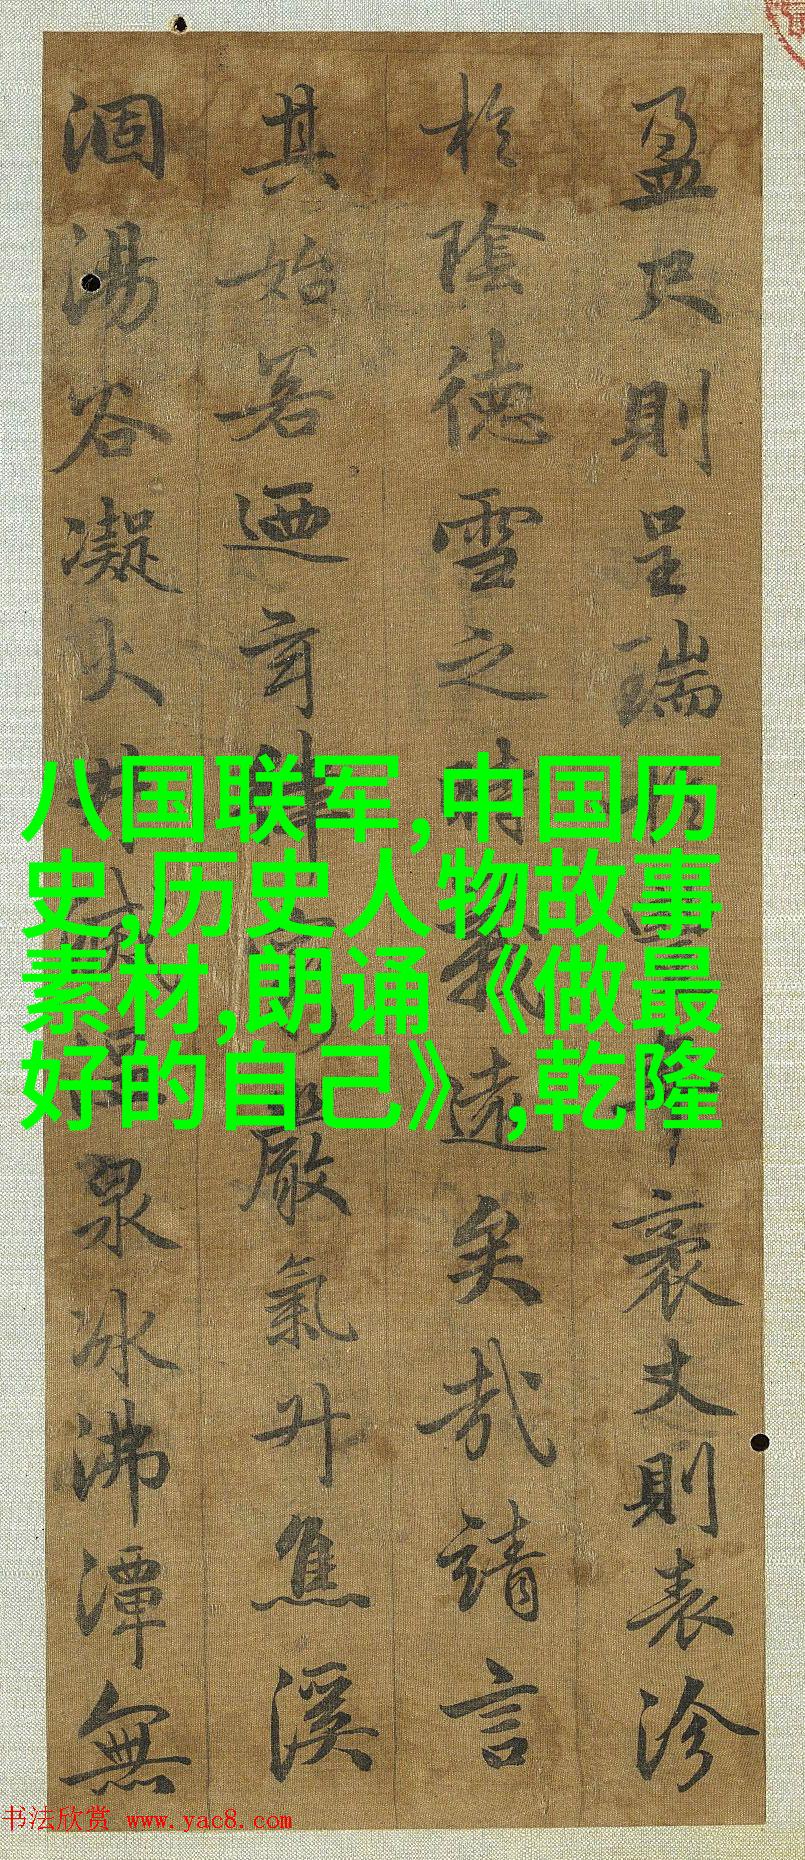 盈尺則呈瑞於豐年袤丈則表沴
於陰德雪之時義遠矣哉請言
其始若迺玄律窮嚴氣升焦溪
涸湯谷凝火井滅温泉冰沸潭無
八国联军,中国历
史,历史人物故事
素材,朗诵《做最
好的自己》,乾隆
书法欣赏 www.yac8.com